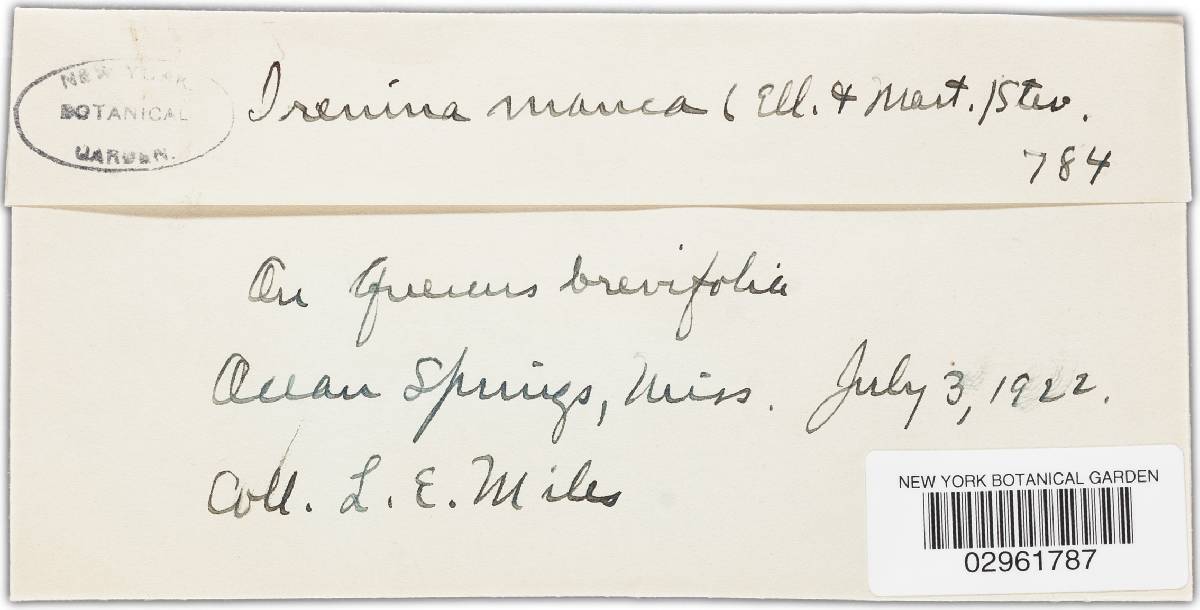 NEW YORK
BOTANICAL
GARDEN.
Irenina manca (Ell. & Mart.) Stev.
784
On Quercus brevifolia
Ocean Springs, Miss. July 3, 1922.
Coll. L. E. Miles
NEW YORK BOTANICAL GARDEN
02961787